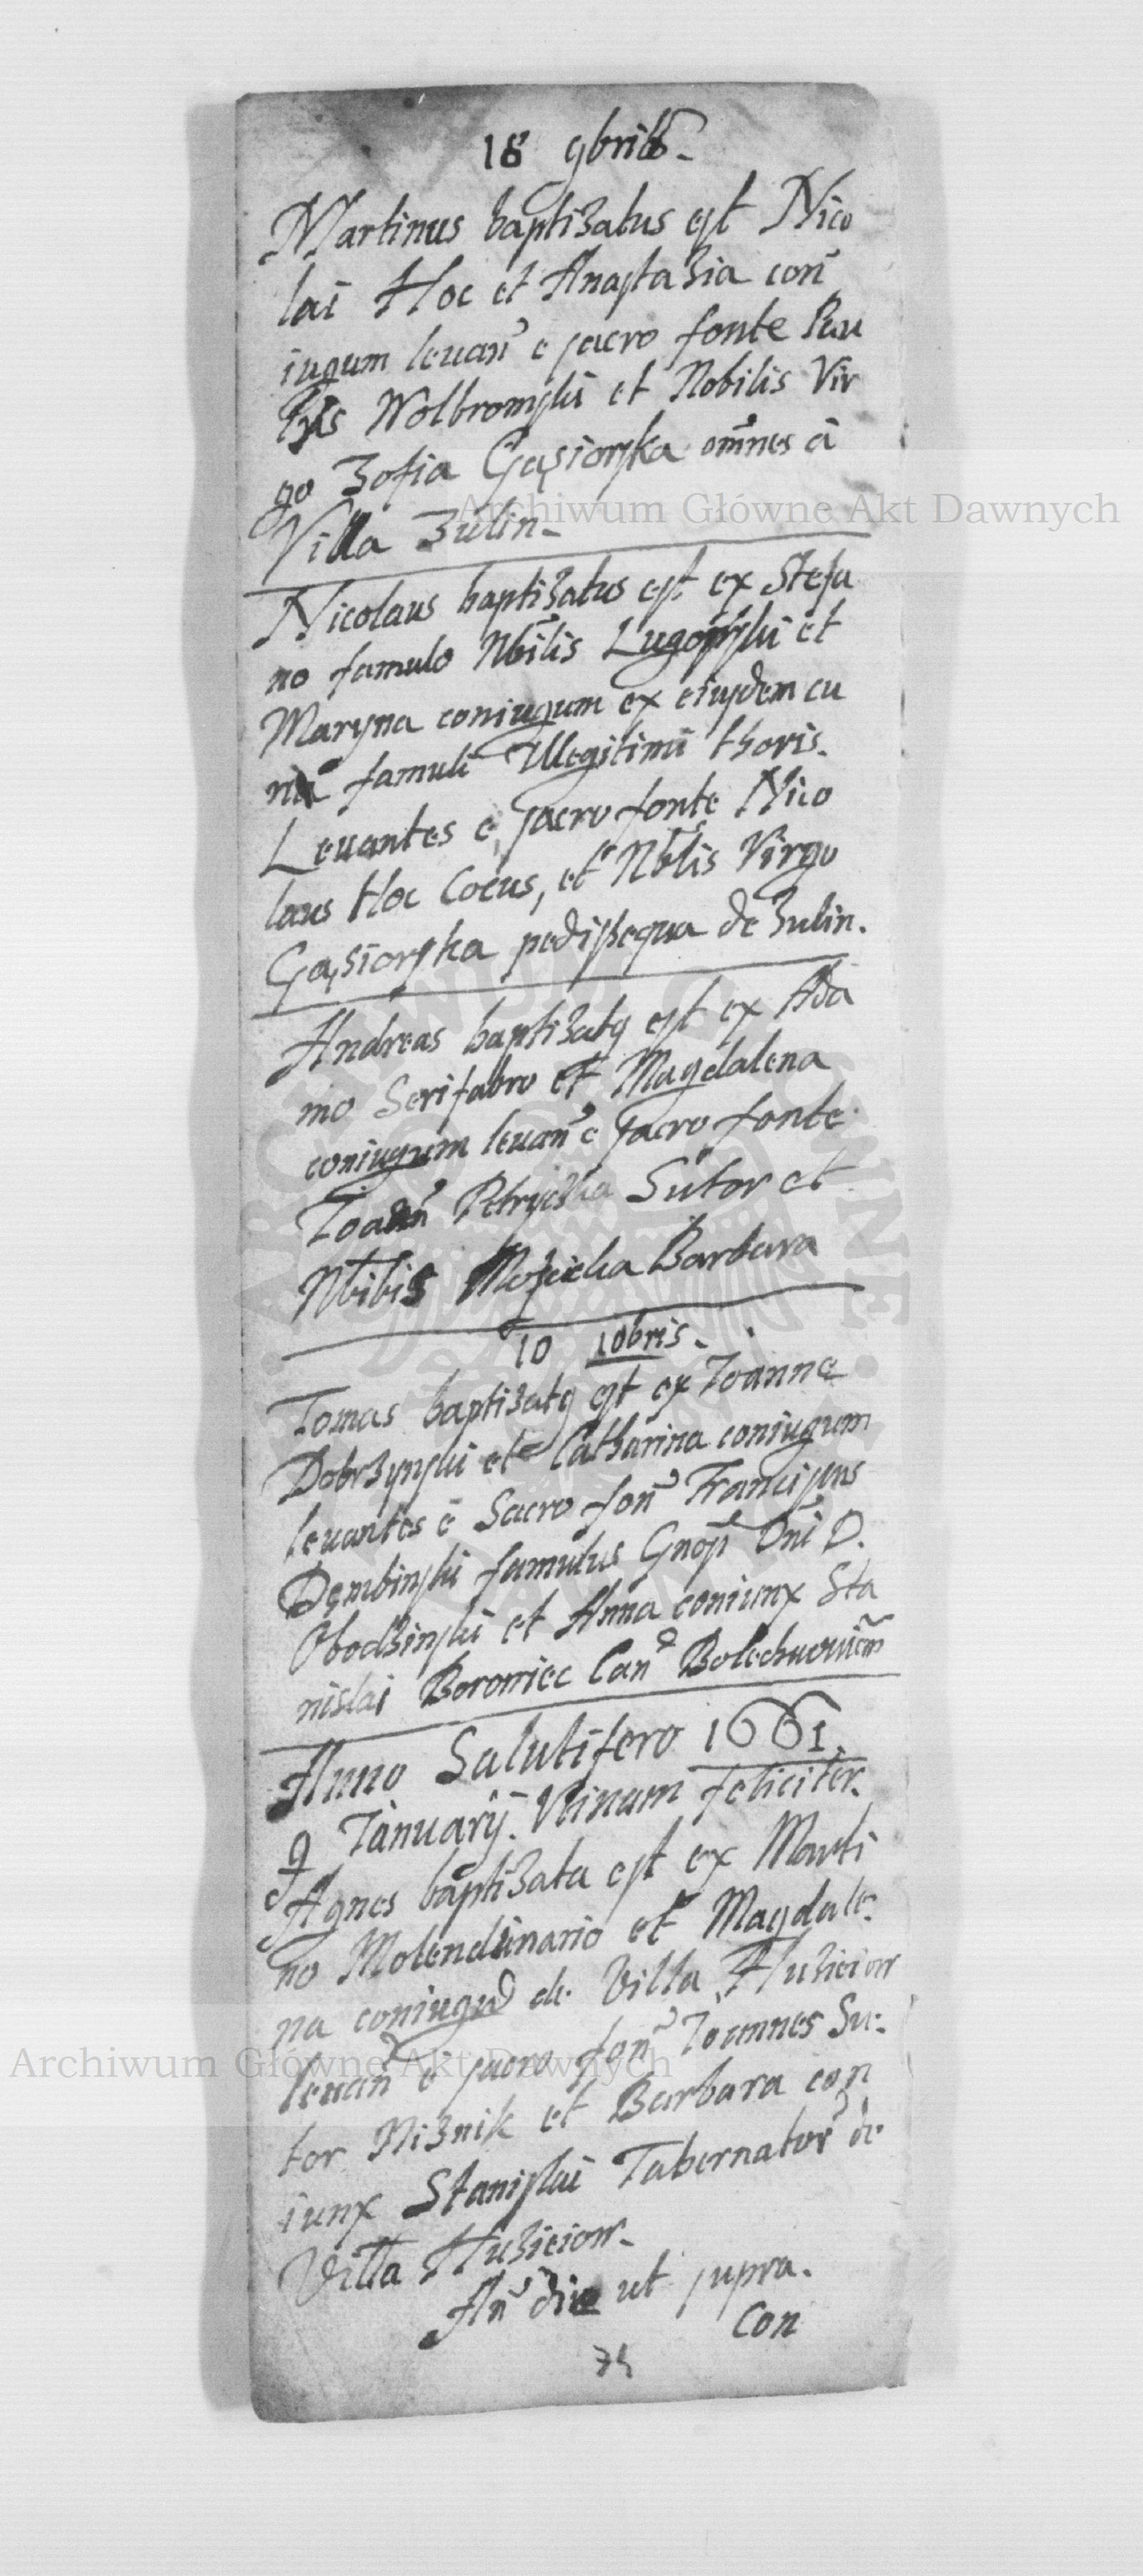 18 9brib.
Martinus baptizatus est Nico
lai Hoc et Anastazia con
iugum leuan e sacro fonte Pau
lus Wolbromski et Nobilis Vir
go Zofia Gąsiorska omnes ã
Villa Zulin.
Nicolaus baptizatus est ex Stefa
no famulo Nbilis Lugowski et
Maryna coniugum ex eiusdem cu
famuli Illegitimi thoris.
Leuantes e sacro fonte Nico
laus Hoc Cocus, et Nblis Virgo
Gąsiorska pedissequa de Zulin.
Andreas baptizatq est ex Ada
mo Serifabro et Magdalena
coniugum leuan e sacro fonte
Ioan Petryczka Sutor et
Nbibis Barbara
10 10bris.
Tomas baptizatq est ex Ioanne
Dobrzynski et Catharina coniugum
leuantes e Sacro fon Franciscus
Dęmbinski famulus Gnosi Dni D.
Obodzinski et Anna coniunx Sta
nislai Boroniec Can Bolechuouiem
Anno Salutifero 1661.
9 Ianuarij. Vtinam feliciter.
Agnes baptizata est ex Marti
no Molendinario et Magdale
na coniugu de Villa Huzieiow
leuan e sacro fon Ioannes Su
tor Niznik et Barbara con
iunx Stanislai Tabernator de
Villa Huzieiow.
An die ut supra.
Con
74
Archiwum Główne Akt Dawnych
Archiwum Główne Akt Dawnych